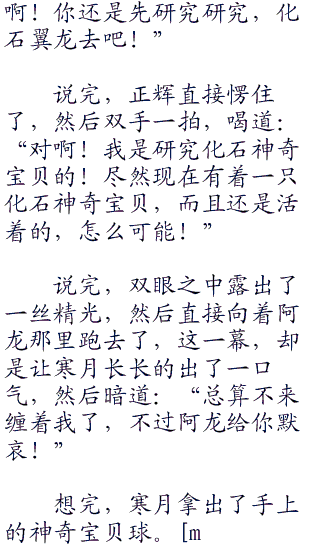 啊！你还是先研究研究，化
石翼龙去吧！”
说完，正辉直接愣住
了，然后双手一拍，喝道：
“对啊！我是研究化石神奇
宝贝的！尽然现在有着一只
化石神奇宝贝，而且还是活
着的，怎么可能！”
说完，双眼之中露出了
一丝精光，然后直接向着阿
龙那里跑去了，这一幕，却
是让寒月长长的出了一口
气，然后暗道：“总算不来
缠着我了，不过阿龙给你默
哀！”
想完，寒月拿出了手上
的神奇宝贝球。[m